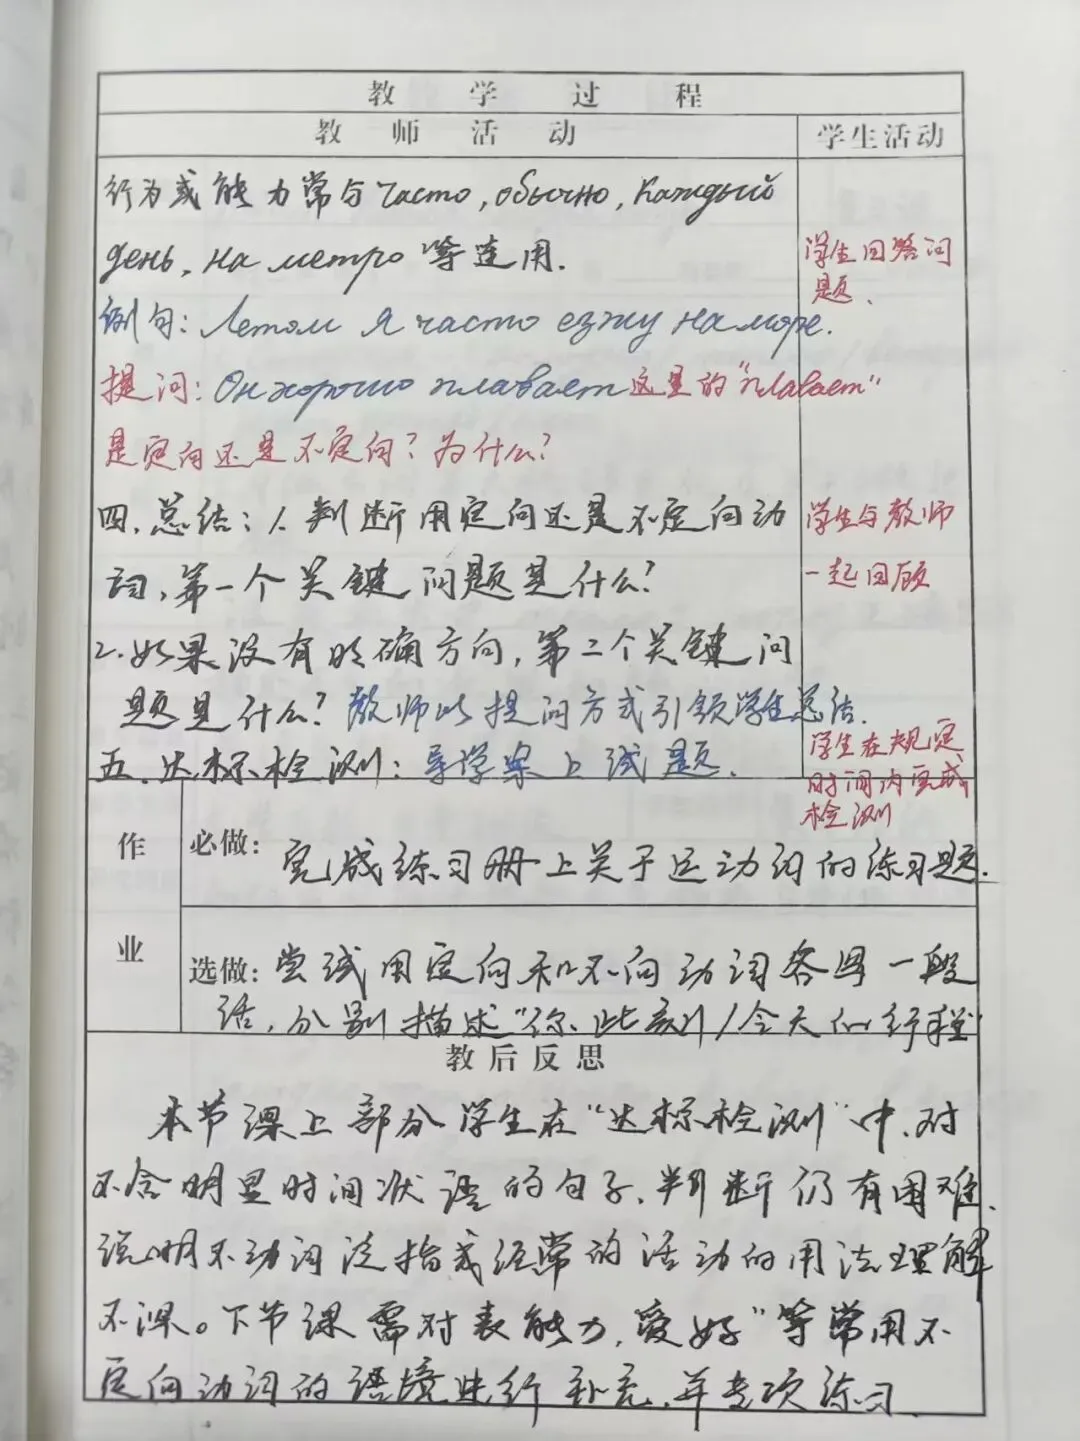 教 学 过 程
教 师 活 动
学生活动
行为或能力常与часто, обычно, каждый
день, на метро 等连用.
例句: Летом я часто езжу на море.
提问: Он хорошо плавает 这里的"плавает"
是定向还是不定向? 为什么?
四. 总结: 1. 判断用定向还是不定向动
词, 第一个关键问题是什么?
2. 如果没有明确方向, 第二个关键问
题是什么? 教师以提问方式引领学生总结.
五. 达标检测: 导学案上试题.
学生回答问
题.
学生与教师
一起回顾
学生在规定
时间内完成
检测
作
业
必做: 完成练习册上关于运动词的练习题.
选做: 尝试用定向和不向动词各写一段
话, 分别描述"你此刻/今天的行程"
教后反思
本节课上部分学生在"达标检测"中, 对
不含明显时间状语的句子, 判断仍有困难.
说明不动词泛指或经常的活动的用法理解
不深。下节课需对表能力, 爱好"等常用不
定向动词的语境进行补充, 并专项练习.